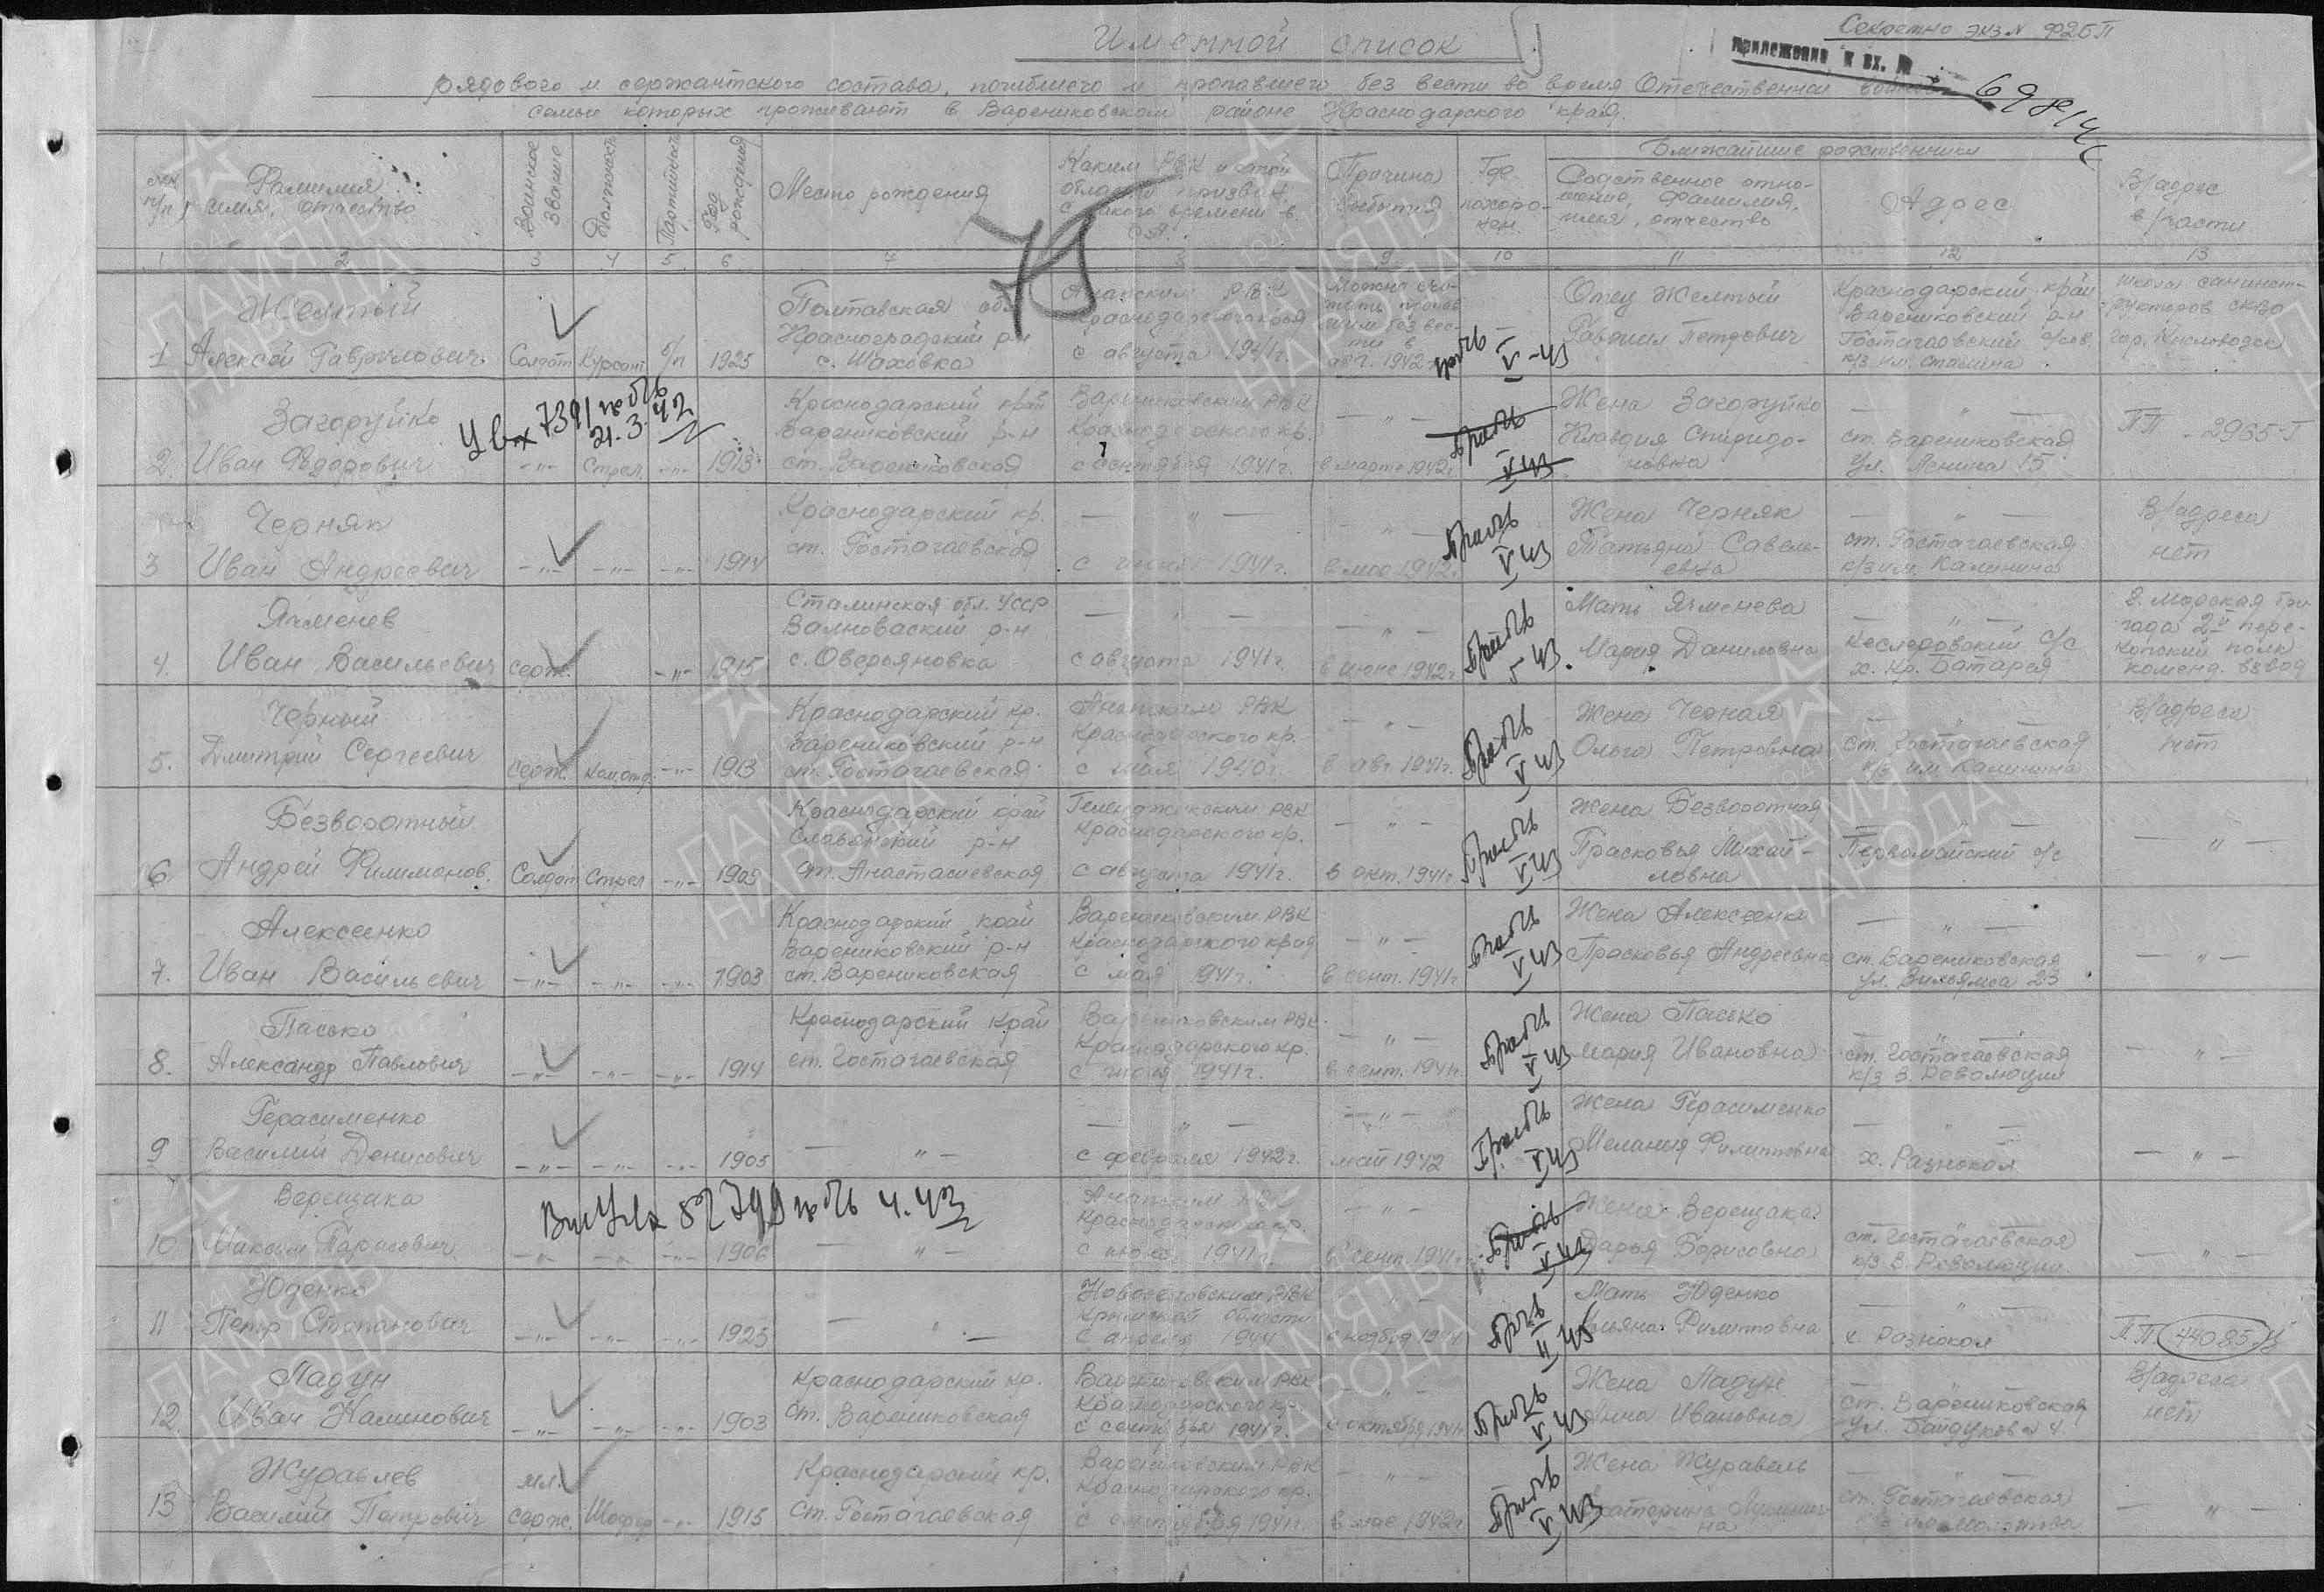 Именной список
Секретно экз. №
приложение к вх. №
рядового и сержантского состава, погибшего и пропавшего без вести во время Отечественной войны
семьи которых проживают в Варениковском районе Краснодарского края.
№№ п/п
Фамилия имя, отчество
Воинское звание
Должность
Партийность
Год рождения
Место рождения
Каким РВК и какой области призван, с какого времени в
Причина выбытия
Где похоронен
Ближайшие родственники
Родственное отношение, фамилия, имя, отчество
Адрес
В/адрес в/части
1 2 3 4 5 6 7 8 9 10 11 12 13
1 Желтый Алексей Гаврилович Солдат Курсант б/п 1925
Полтавская обл. Красноградский р-н с. Шаховка
Анапским РВК Краснодарского края с августа 1941г.
Можно считать пропавшим без вести в авг. 1942
Отец Желтый Гавриил Петрович
Краснодарский край Варениковский р-н Гостагаевский с/сов. к/з им. Сталина
Школа санинструкторов СКВО гор. Кисловодск
2. Загоруйко Иван Федорович -"- Стрел. -"- 1913
Краснодарский край Варениковский р-н ст. Варениковская
Варениковским РВК Краснодарского кр. с сентября 1941г.
— " — в марте 1942г.
Жена Загоруйко Клавдия Спиридоновна
— " — ст. Варениковская ул. Ленина 15
ПП - 2965-
3 Черняк Иван Андреевич -"- -"- -"- 1914
Краснодарский кр. ст. Гостагаевская
— " — с июня 1941г.
— " — в мае 1942г.
Жена Черняк Татьяна Савельевна
— " — ст. Гостагаевская к/з им. Калинина
В/адреса нет
4. Ячменев Иван Васильевич серж. -"- 1915
Сталинская обл. УССР Валновасский р-н с. Оверьяновка
— " — с августа 1941г.
— " — в июне 1942г.
Мать Ячменева Мария Даниловна
— " — Кеслеровский с/с х. Кр. Батарея
8. морская бригада 2й перекопский полк коменд. взвод
5. Черный Дмитрий Сергеевич серж. Ком.отд. -"- 1913
Краснодарский кр. Варениковский р-н ст. Гостагаевская
Анапским РВК Краснодарского кр. с мая 1940г.
— " — в авг. 1941г.
Жена Черная Ольга Петровна
— " — ст. Гостагаевская к/з им. Калинина
В/адреса нет
6. Безворотный Андрей Филимонов. Солдат Стрел. -"- 1909
Краснодарский край Славянский р-н ст. Анастасиевская
Геленджикским РВК Краснодарского кр. с августа 1941г.
— " — в окт. 1941г.
Жена Безворотная Прасковья Михайловна
— " — Первомайский с/с
— " —
7. Алексеенко Иван Васильевич -"- -"- -"- 1903
Краснодарский край Варениковский р-н ст. Варениковская
Варениковским РВК Краснодарского края с мая 1941г.
— " — в сент. 1941г.
Жена Алексеенко Прасковья Андреевна
— " — ст. Варениковская ул. Вильямса 23
— " —
8. Пасько Александр Павлович -"- -"- -"- 1914
Краснодарский край ст. Гостагаевская
Варениковским РВК Краснодарского кр. с июня 1941г.
— " — в сент. 1941г.
Жена Пасько Мария Ивановна
— " — ст. Гостагаевская к/з В. Революция
— " —
9 Герасименко Василий Денисович -"- -"- -"- 1905
— " —
— " — с февраля 1942г.
— " — май 1942
Жена Герасименко Мелания Филипповна
— " — х. Разнокол
— " —
10 Верещака Максим Тарасович -"- -"- -"- 1906
— " —
Анапским РВК Краснодарского кр. с июля 1941г.
— " — в сент. 1941г.
Жена Верещака Дарья Борисовна
ст. Гостагаевская к/з В. Революции
— " —
11 Юденко Петр Степанович -"- -"- -"- 1925
— " —
Новоселовским РВК Крымской области с апреля 1944
— " — с ноября 1944
Мать Юденко Ульяна Филипповна
— " — х. Разнокол
П.П. 44085
12 Ладун Иван Калинович -"- -"- -"- 1903
Краснодарский кр. ст. Варениковская
Варениковским РВК Краснодарского кр. с сентября 1941г.
— " — с октября 1941г
Жена Ладун Анна Ивановна
— " — ст. Варениковская ул. Байдукова 4.
В/адреса нет
13 Журавлев Василий Петрович мл. серж. Шофер -"- 1915
Краснодарский кр. ст. Гостагаевская
Варениковским РВК Краснодарского кр. с сентября 1941г.
— " — в мае 1942г
Жена Журавель Екатерина
— " — ст. Гостагаевская
— " —
ПАМЯТЬ НАРОДА